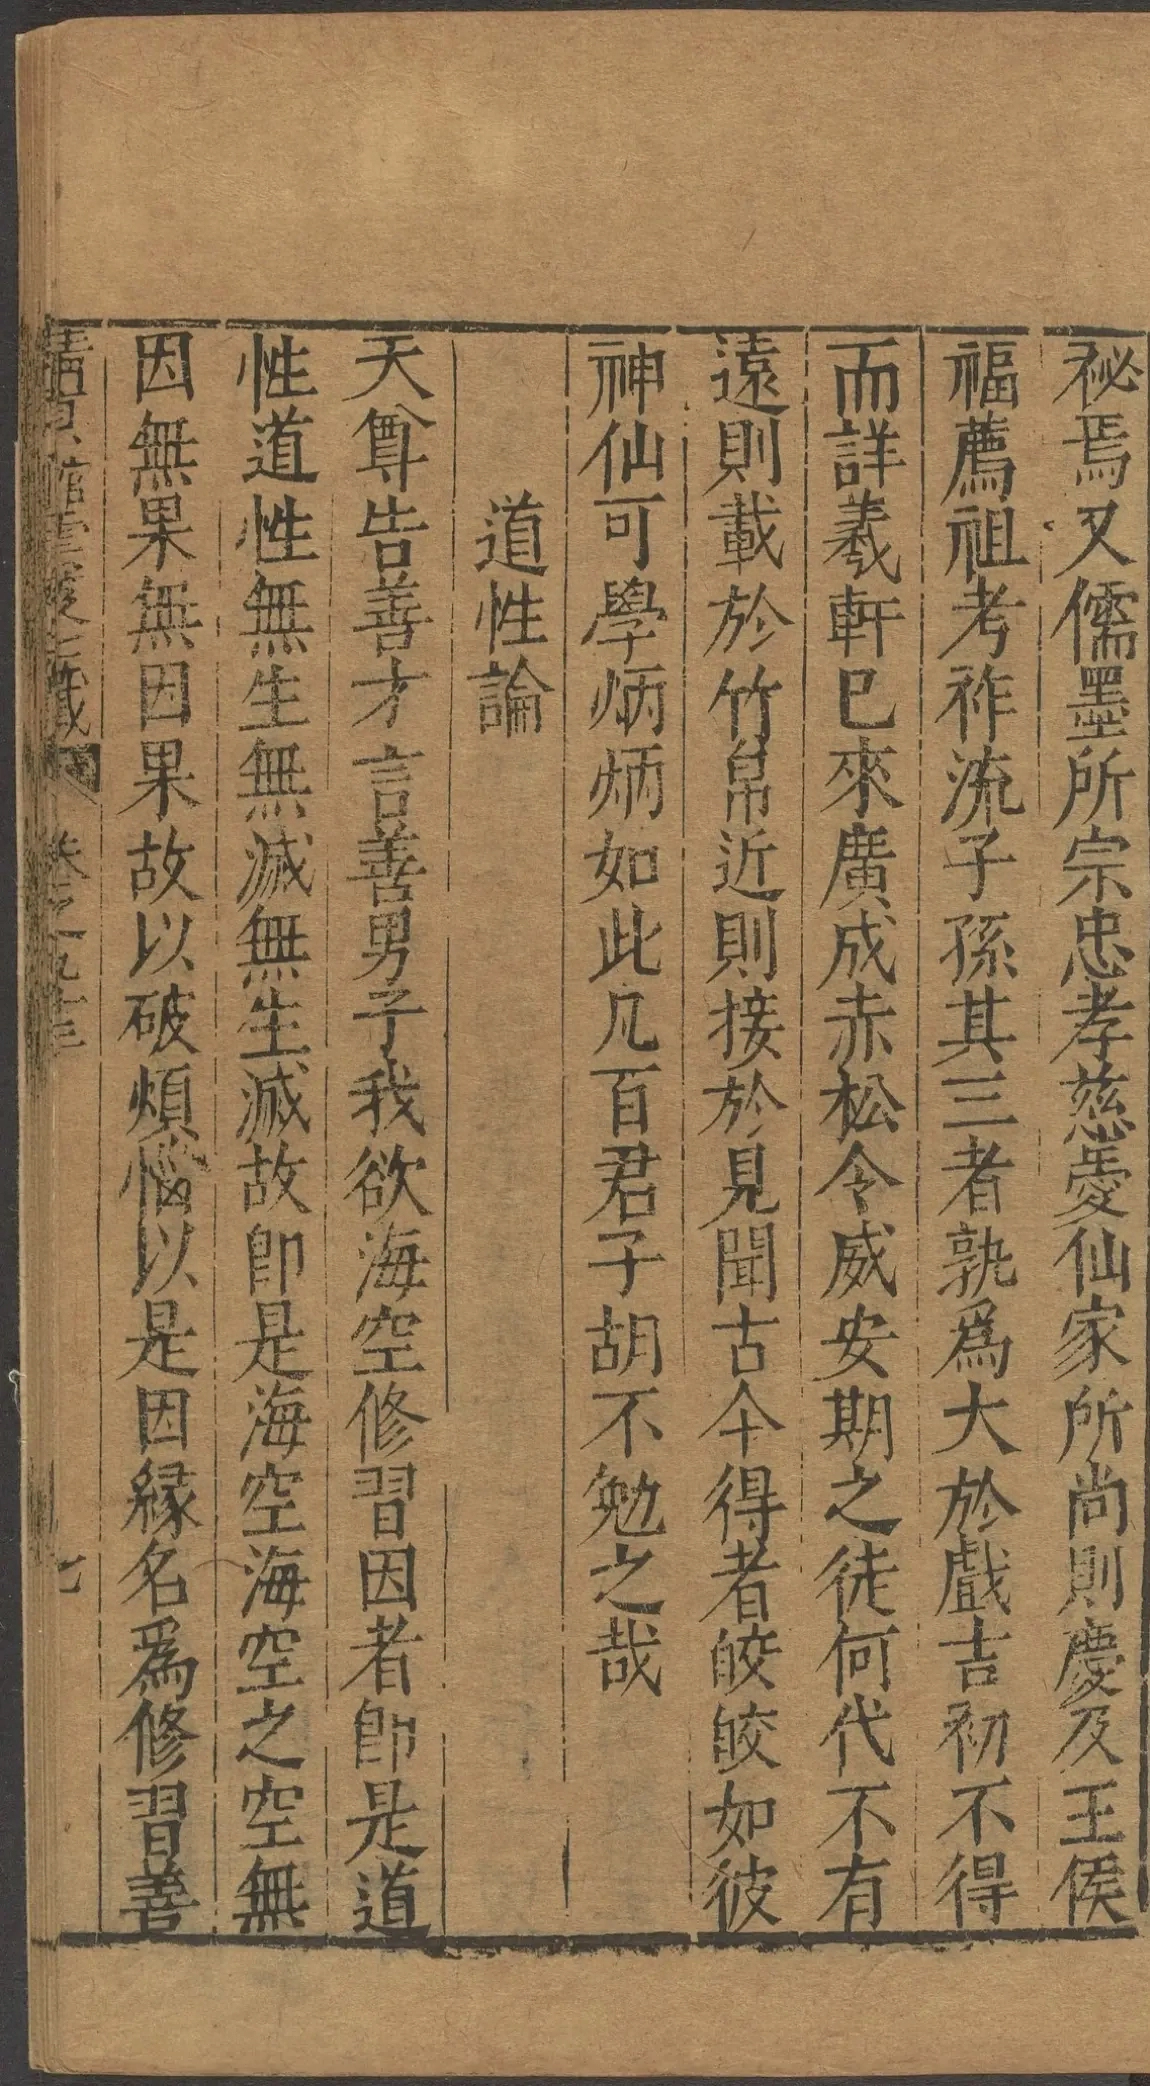 祕焉又儒墨所宗忠孝慈愛仙家所尚則慶及王侯
福薦祖考祚流子孫其三者孰爲大於戲吉初不得
而詳羲軒已來廣成赤松令威安期之徒何代不有
遠則載於竹帛近則接於見聞古今得者皎皎如彼
神仙可學炳炳如此凡百君子胡不勉之哉
道性論
天尊告善才言善男子我欲海空修習因者卽是道
性道性無生無滅無生滅故卽是海空海空之空無
因無果無因果故以破煩惱以是因緣名爲修習善
清眞館雲笈七籤 卷之九十三 七